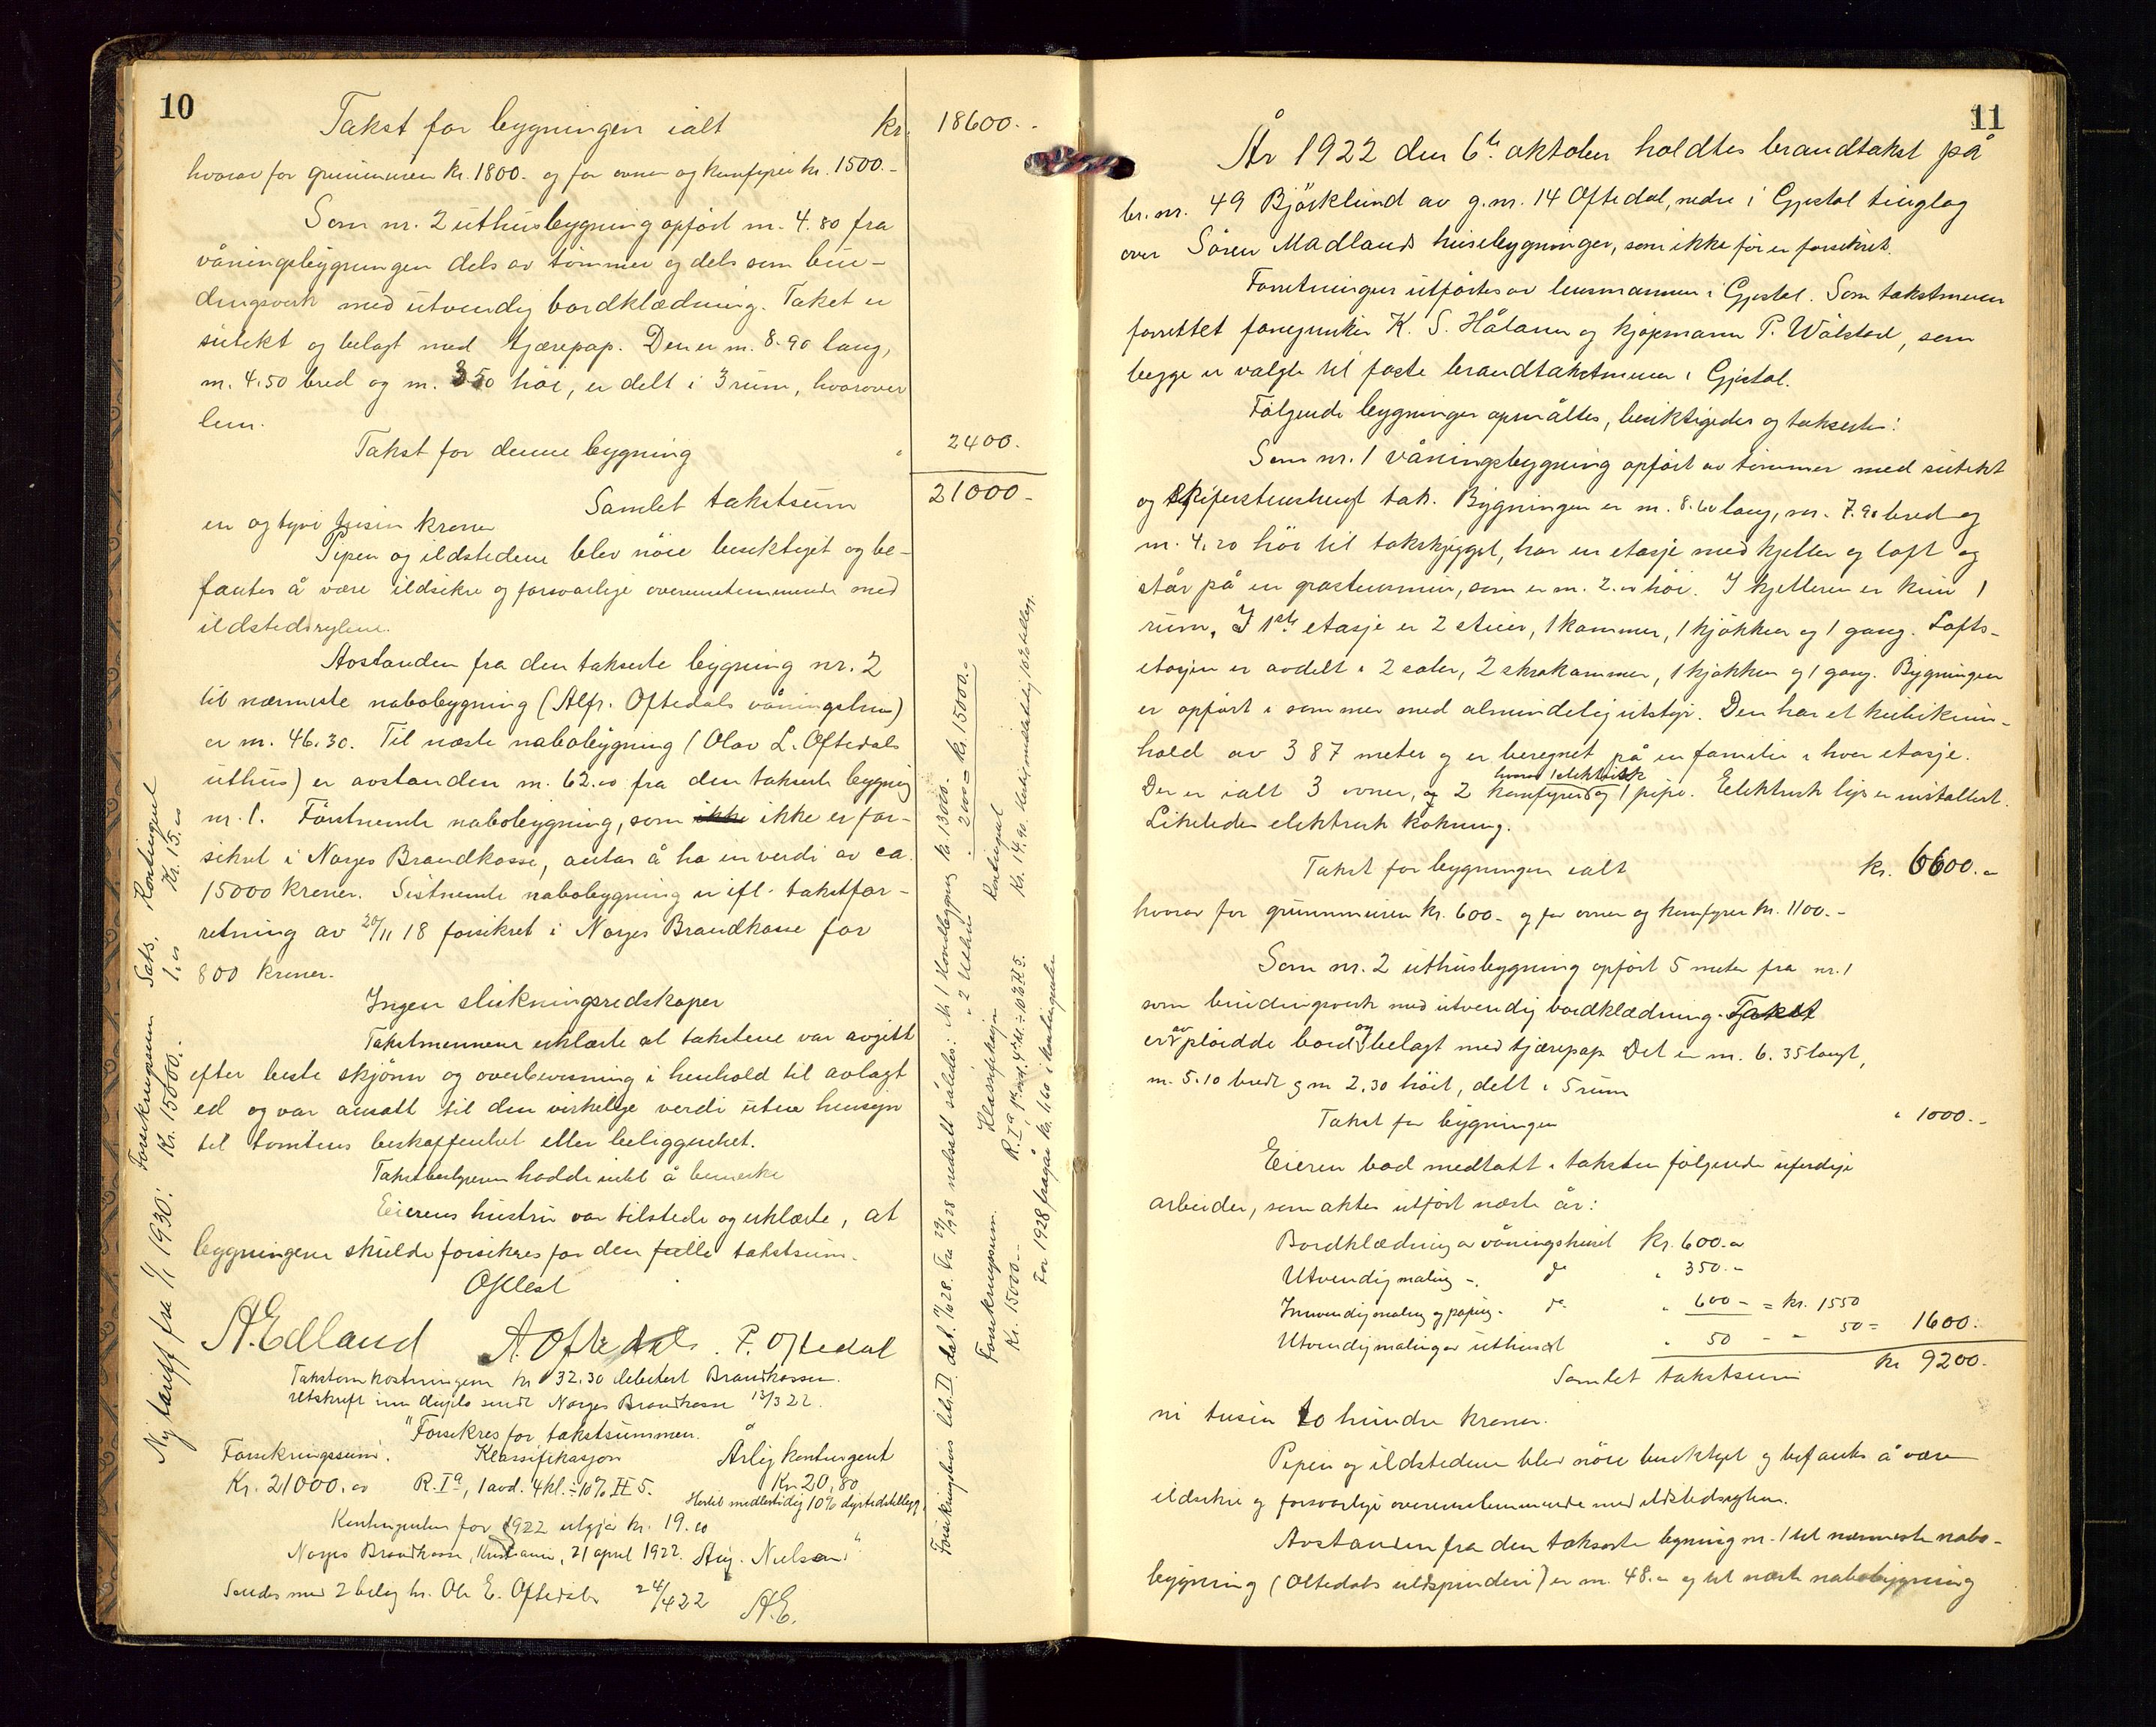 10
Takst for bygningen ialt kr. 18600.-
hvorav for grunmuren kr. 1800.- og for ovner og komfyrer kr. 1500.-
Som nr. 2 uthusbygning opført m. 4.80 fra
våningsbygningen dels av tømmer og dels som bin-
dingsverk med utvendig bordklædning. Taket er
sutekt og belagt med tjærepap. Den er m. 8.90 lang,
m. 4.50 bred og m. 3.50 höi, er delt i 3 rum, hvorover
lem.
Takst for denne bygning " 2400.
Samlet takstsum 21000.-
en og tyve tusin kroner
Pipen og ildstedene blev nöie besiktiget og be-
fantes å være ildsikre og forsvarlige overensstemmende med
ildstedsreglene.
Avstanden fra den takserte bygning nr. 2
til nærmeste nabobygning (Alfr. Oftedals våningshus)
er m. 46.30. Til næste nabobygning (Olav L. Oftedals
uthus) er avstanden m. 62.00 fra den takserte bygning
nr. 1. Förstnevnte nabobygning, som ikke ikke er for-
sikret i Norges Brandkasse, antas å ha en verdi av ca.
15000 kroner. Sistnevnte nabobygning er ifl. takstfor-
retning av 20/11 18 forsikret i Norges Brandkasse for
800 kroner.
Ingen slukningsredskaper
Takstmennene erklærte at takstene var avgitt
efter beste skjönn og overbevisning i henhold til avlagt
ed og var ansatt til den virkelige verdi uten hensyn
til tomtens beskaffenhet eller beliggenhet.
Takstbestyreren hadde intet å bemerke
Eierens hustru var tilstede og erklærte, at
bygningene skulde forsikres for den fulle takstsum.
Oplest
A. Edland A. Oftedal. P. Oftedal
Takstomkostningene kr 32.30 debitert Brandkassen.
Utskrift inn duplo sendt Norges Brandkasse 13/3 22.
"Forsikres for takstsummen.
Forsikringssum. Klassifikasjon Årlig kontingent
Kr. 21000.00 R. Ia, 1 avd. 4 kl. ÷ 10% II 5. Kr. 20,80
Hertil midlertidig 10% dyrtidstillegg.
Kontingenten for 1922 utgjör kr. 19.00
Norges Brandkasse, Kristiania, 21 april 1922. Aug. Nielsen"
Sendes med 2 bilag hr. Ole E. Oftedal 24/4 22 A.E.
Ny tariff fra 1/1 1930: Forsikringssum Sats. Kontingent
Kr. 15000.- 1.00 Kr. 15.00
Forsikringsbevis litr. D. dat. 28. Fra 29/ 1928 nedsatt således: Nr. 1 Hovedbygning kr. 13000.-
" 2 Uthus " 2000.- = kr. 15000.-
Forsikringssum. Klassifikasjon Kontingent
Kr. 15000.- R. Ia 1ste avd. 4 kl. ÷ 10% II 5. Kr. 14.90. Hertil midlertidig 10% tillegg.
For 1928 fragår kr. 1,60 i kontingenten
11
År 1922 den 6te oktober holdtes brandtakst på
br.nr. 49 Björklund av g.nr. 14 Oftedal, nedre i Gjestal tinglag
over Sören Madlands husebygninger, som ikke før er forsikret.
Forretningen utförtes av lensmannen i Gjestal. Som takstmenn
forrettet fanejunker K. S. Håland og kjøpmann P. Wålstad, som
begge er valgte til faste brandtakstmenn i Gjestal.
Fölgende bygninger opmåltes, besiktigedes og takserte:
Som nr. 1 våningsbygning opført av tömmer med sutekt
og skiferstenshengt tak. Bygningen er m. 8.60 lang, m. 7.90 bred og
m. 4.20 höi til takskjegget, har en etasje med kjeller og loft og
står på en gråstensmur, som er m. 2.00 höi. I kjelleren er kun 1
rum. I 1ste etasje er 2 stuer, 1 kammer, 1 kjökken og 1 gang. Lofts-
etasjen er avdelt i 2 saler, 2 skrakammer, 1 kjøkken og 1 gang. Bygningen
er opført i sommer med almindelig utstyr. Den har et kubikinn-
hold av 387 meter og er beregnet på en familie i hver etasje.
Der er ialt 3 ovner, og 2 komfyrer hvorav 1 elektrisk og 1 pipe. Elektrisk lys er installert.
Likeledes elektrisk kokning.
Takst for bygningen ialt kr. 6600.-
hvorav for grunnmuren kr. 600.- og for ovner og komfyrer kr. 1100.-
Som nr. 2 uthusbygning opført 5 meter fra nr. 1
som bindingsverk med utvendig bordklædning. Taket
er av plöidde bord og belagt med tjærepap. Det er m. 6.35 langt,
m. 5.10 bredt og m 2.30 höit, delt i 5 rum
Takst for bygningen " 1000.-
Eieren bad medtatt i taksten følgende uferdige
arbeider, som aktes utfört næste år:
Bordklædning av våningshuset kr. 600.-
Utvendig maling -. do " 350.-
Innvendig maling og paping - do " 600.- = kr. 1550
Utvendig maling av uthuset " 50 - - 50 = 1600.
Samlet takstsum kr 9200.-
ni tusin to hundre kroner.
Pipen og ildstedene blev nöie besiktiget og befantes å være
ildsikre og forsvarlige overensstemmende med ildstedsreglene.
Avstanden fra den takserte bygning nr. 1 til nærmeste nabo-
bygning (Oltedals uldspinderi) er m. 48.- og til næste nabobygning